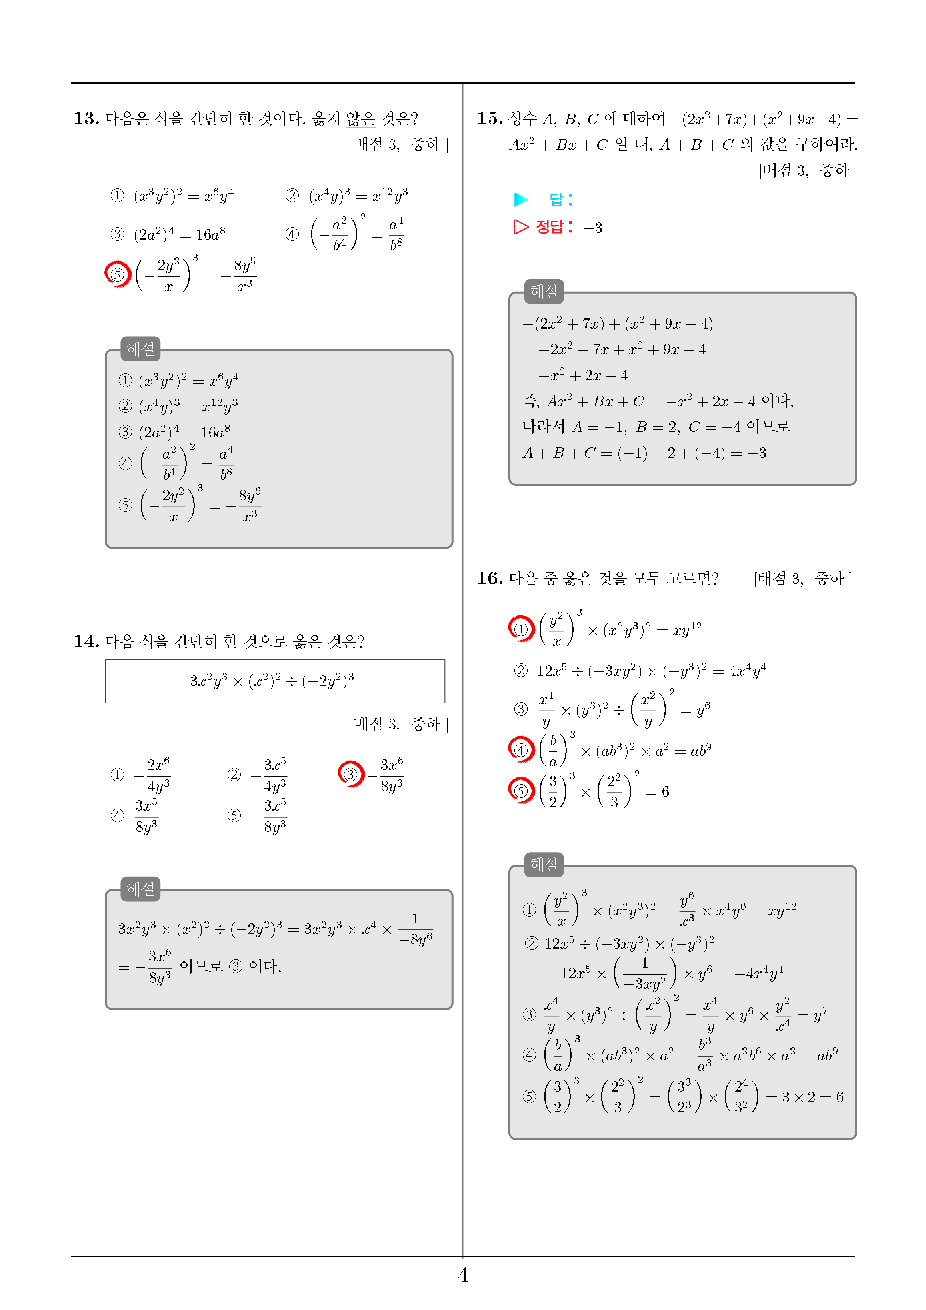 13. 다음은 식을 간단히 한 것이다. 옳지 않은 것은?
[배점 3, 중하]
① (x³y²)² = x⁶y⁴ ② (x⁴y)³ = x¹²y³
③ (2a²)⁴ = 16a⁸ ④ (−a²/b⁴)² = a⁴/b⁸
⑤
해설
① (x³y²)² = x⁶y⁴
② (x⁴y)³ = x¹²y³
③ (2a²)⁴ = 16a⁸
④ (−a²/b⁴)² = a⁴/b⁸
⑤ (−2y²/x)³ = −8y⁶/x³
14. 다음 식을 간단히 한 것으로 옳은 것은?
3x²y³ × (x²)² ÷ (−2y²)³
[배점 3, 중하]
① −2x⁶/4y³ ② −3x⁵/4y³ ③ −3x⁶/8y³
④ 3x⁵/8y³ ⑤ −3x⁵/8y³
해설
3x²y³ × (x²)² ÷ (−2y²)³ = 3x²y³ × x⁴ × 1/−8y⁶
= −3x⁶/8y³ 이므로 ③ 이다.
15. 상수 A, B, C 에 대하여 −(2x²+7x)+(x²+9x−4) =
Ax² + Bx + C 일 때, A + B + C 의 값을 구하여라.
[배점 3, 중하]
▶ 답 :
▷ 정답 : −3
해설
−(2x² + 7x) + (x² + 9x − 4)
= −2x² − 7x + x² + 9x − 4
= −x² + 2x − 4
즉, Ax² + Bx + C = −x² + 2x − 4 이다.
따라서 A = −1, B = 2, C = −4 이므로
A + B + C = (−1) + 2 + (−4) = −3
16. 다음 중 옳은 것을 모두 고르면? [배점 3, 중하]
① (y²/x)³ × (x²y³)² = xy¹²
② 12x⁵ ÷ (−3xy²) × (−y³)² = 4x⁴y⁴
③ x⁴/y × (y³)² ÷ (x²/y)² = y⁶
④ (b/a)³ × (ab³)² × a² = ab⁹
⑤ (3/2)³ × (2²/3)² = 6
해설
① (y²/x)³ × (x²y³)² = y⁶/x³ × x⁴y⁶ = xy¹²
② 12x⁵ ÷ (−3xy²) × (−y³)²
= 12x⁵ × (1/−3xy²) × y⁶ = −4x⁴y⁴
③ x⁴/y × (y³)² ÷ (x²/y)² = x⁴/y × y⁶ × y²/x⁴ = y⁷
④ (b/a)³ × (ab³)² × a² = b³/a³ × a²b⁶ × a² = ab⁹
⑤ (3/2)³ × (2²/3)² = (3³/2³) × (2⁴/3²) = 3 × 2 = 6
4